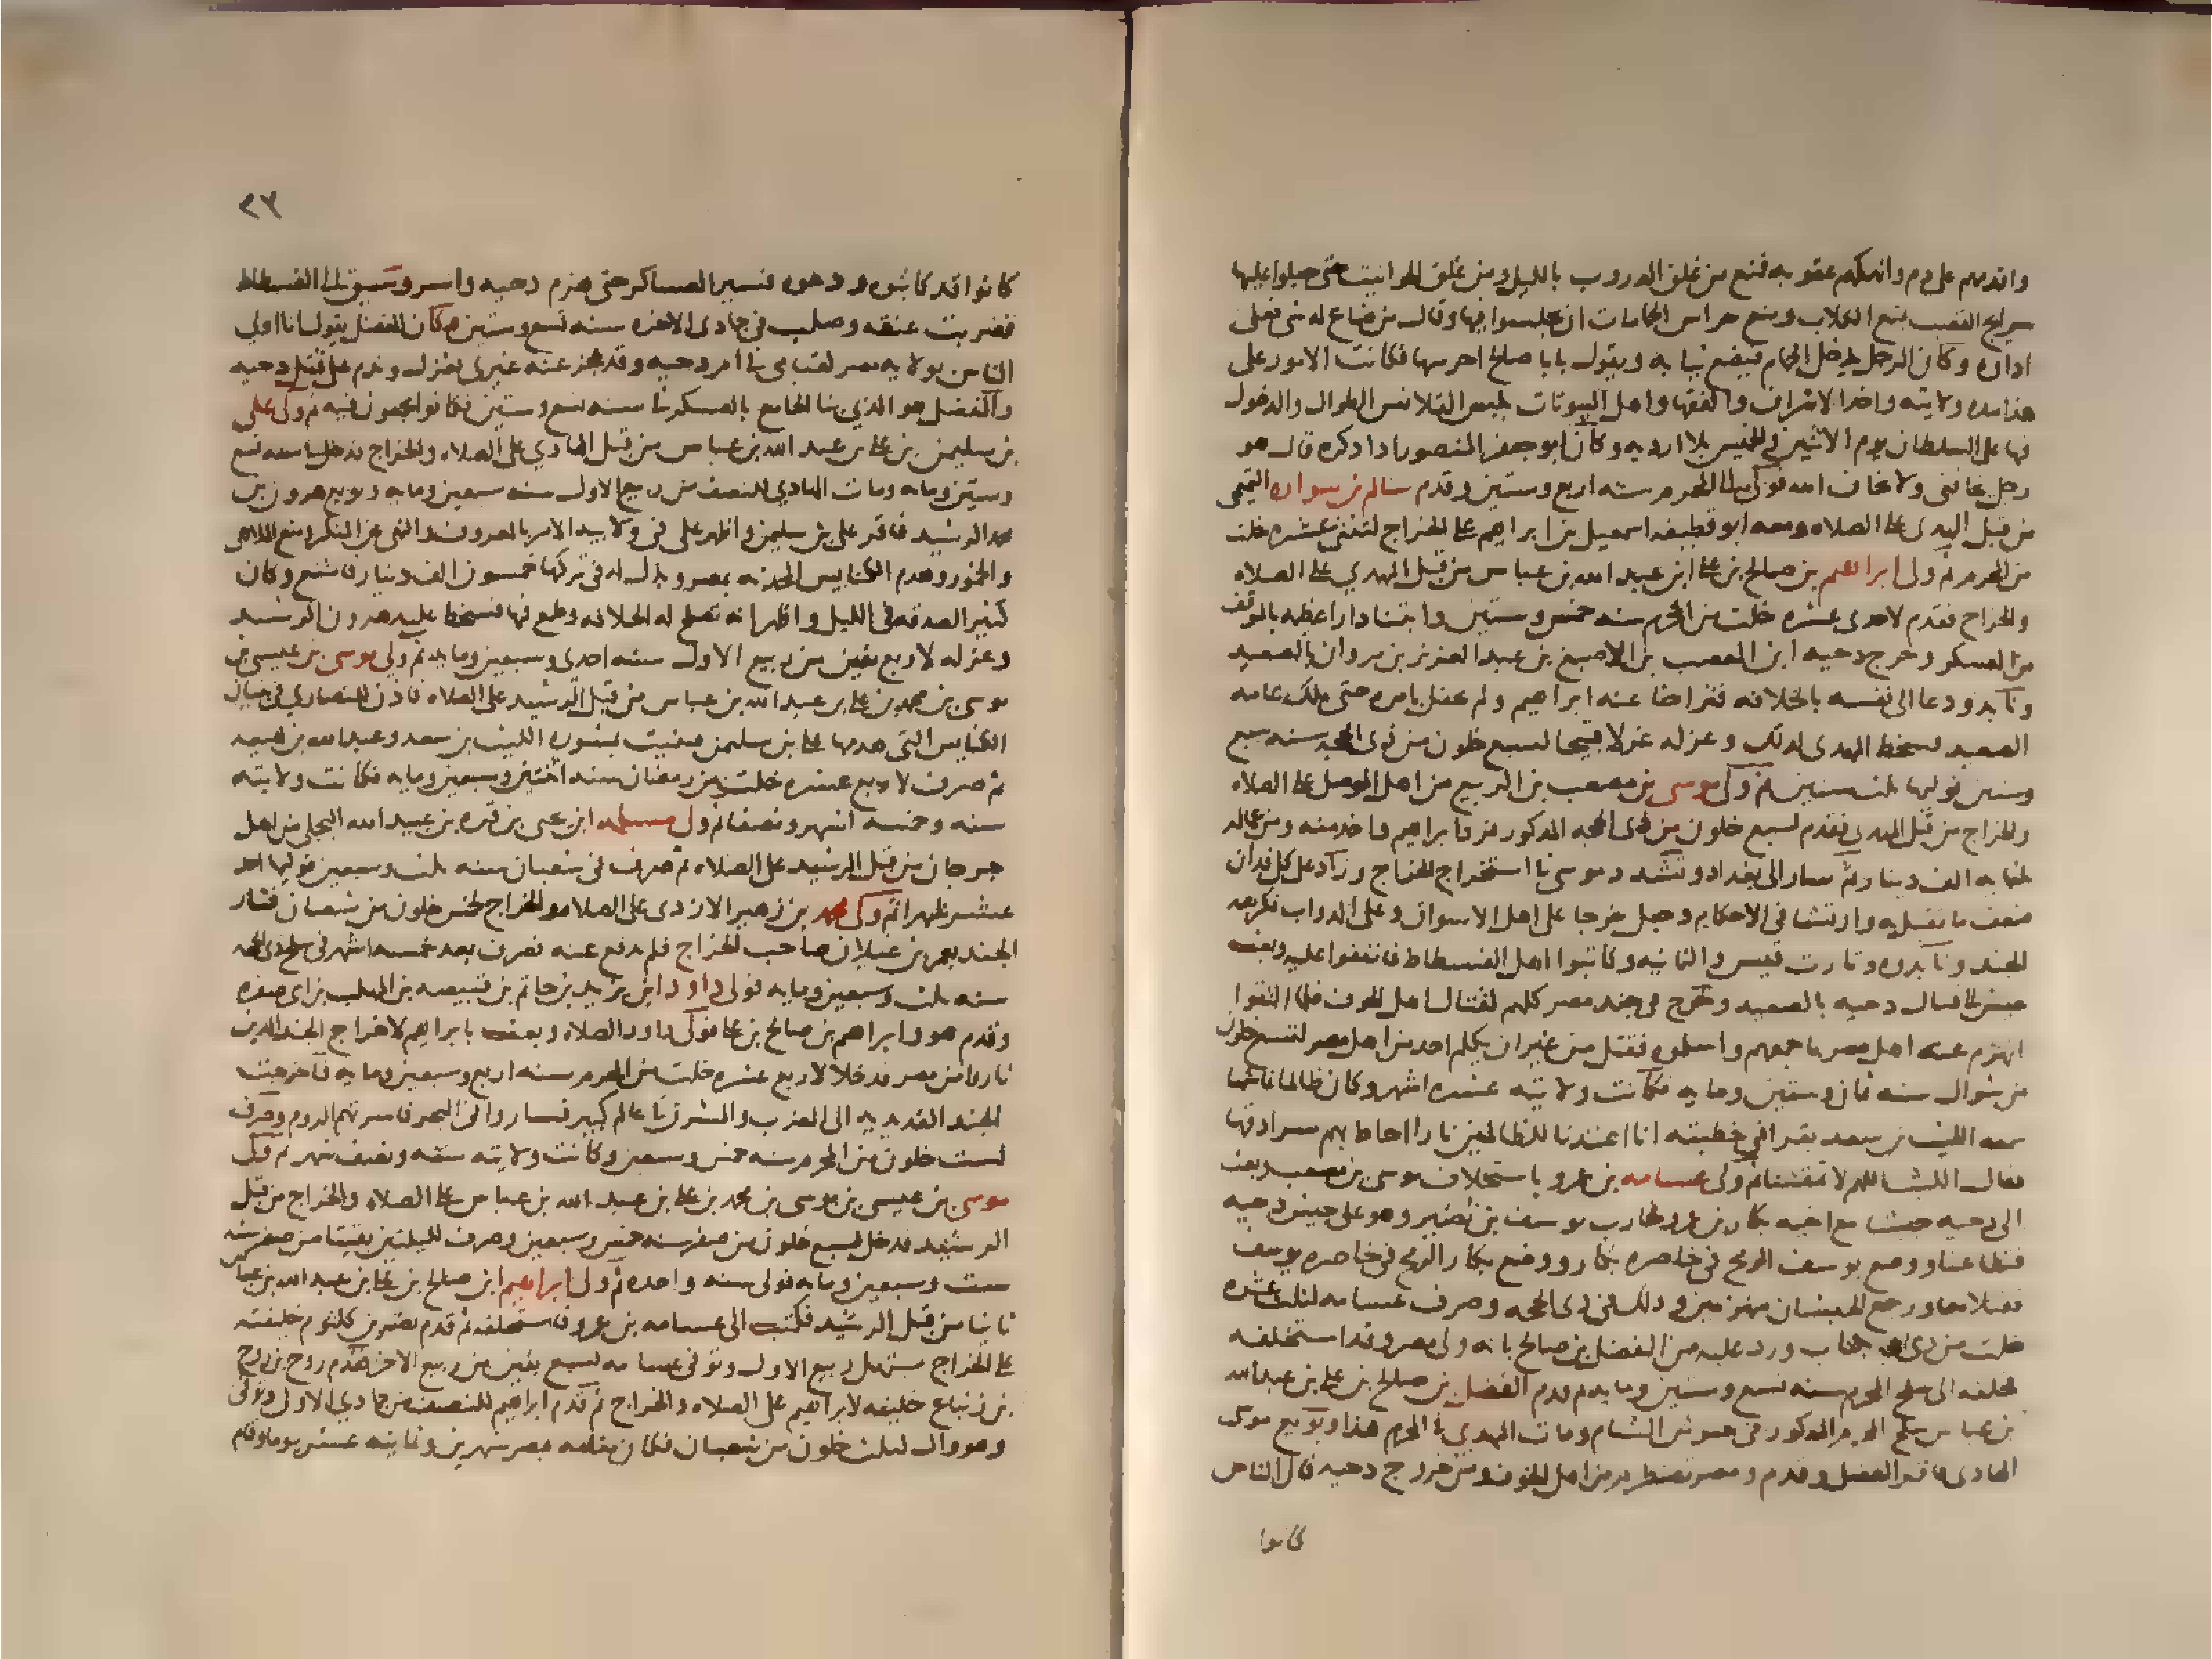 واقدمهم على دم وانهكهم عقوبه فمنع من غلق الدروب بالليل ومن غلق الحوانيت حتى جعلوا عليها
شرايج القصب تمنع الكلاب ومنع حراس الحمامات ان يجلسوا فيها وقال من ضاع له شي فعلى
اداوه وكان الرجل يدخل الحمام فيضع ثيابه ويقول يابا صالح احرسها فكانت الامور على
هذا مده ولايته واخذ الاشراف والفقها واهل البيوتات بلبس القلانس الطوال والدخول
فيها على السلطان يوم الاثنين والخميس بلا ارديه وكان ابو جعفر المنصور اذا ذكره قال هو
رجل يخافنى ولا يخاف الله فولى الى المحرم سنه اربع وستين وقدم سالم بن سواده التميمى
من قبل المهدى على الصلاه ومعه ابو قطيفه اسمعيل بن ابراهيم على الخراج لثنتى عشره خلت
من المحرم ثم ولى ابراهيم بن صالح بن على ابن عبد الله بن عباس من قبل المهدي على الصلاه
والخراج فقدم لاحدى عشره خلت من المحرم سنه خمس وستين وابتنا دارا عظيمه بالموقف
من العسكر وخرج دحيه ابن المعصب بن الاصبغ بن عبد العزيز بن مروان بالصعيد
ونابذ ودعا الى نفسه بالخلافه فتراخا عنه ابراهيم ولم يحفل بامره حتى ملك عامه
الصعيد فسخط المهدى لذلك وعزله عزلا قبيحا لسبع خلون من ذى الحجه سنه سبع
وستين فوليها ثلث سنين ثم ولى موسى بن مصعب بن الربيع من اهل الموصل على الصلاه
والخراج من قبل المهدى فقدم لسبع خلون من ذى الحجه المذكور فرد ابراهيم فاخذ منه ومن عماله
ثلثمايه الف دينار ثم سار الى بغداد وتشدد موسى فى استخراج الخراج وزاد على كل فدان
ضعف ما يقبل به وارتشا فى الاحكام وجعل خرجا على اهل الاسواق وعلى الدواب فكرهه
الجند ونابذوه وثارت قيس واليمانيه وكاتبوا اهل الفسطاط فاتفقوا عليه وبعث
بجيش الى قتال دحيه بالصعيد وخرج فى جند مصر كلهم لقتال اهل الحوف فلما التقوا
انهزم عنه اهل مصر باجمعهم واسلموه فقتل من غير ان يكلم احد من اهل مصر لتسع خلون
من شوال سنه ثمان وستين ومايه فكانت ولايته عشره اشهر وكان ظالما غاشما
سمعه الليث بن سعد يقرا فى خطبته انا اعتدنا للظالمين نارا احاط بهم سرادقها
فقال الليث اللهم لا تمقتنا ثم ولى عسامه بن عمرو باستخلاف موسى بن مصعب وبعث
الى دحيه جيشا مع اخيه بكار بن عمرو فحارب يوسف بن نصير وهو على جيش دحيه
فتطاعنا ووضع يوسف الرمح فى خاصره بكار ووضع بكار الرمح فى خاصره يوسف
فقتلا معا ورجع الجيشان منهزمين وذلك فى ذى الحجه وصرف عسامه لثلث عشره
خلت من ذى الحجه بكتاب ورد عليه من الفضل بن صالح بانه ولى مصر وقد استخلفه
فخلفه الى سلخ المحرم سنه تسع وستين ومايه ثم قدم الفضل بن صالح بن على بن عبد الله
بن عباس سلخ المحرم المذكور فى جيوش الشام ومات المهدى فى المحرم هذا وبويع موسى
الهادى فاقر الفضل وقدم ومصر تضطرم من اهل الحوف ومن خروج دحيه فان الناس
كانوا
٢٣
كانوا قد كاتبوه ودعوه فسير العساكر حتى هزم دحيه واسر وسيق الى الفسطاط
فضربت عنقه وصلب فى جمادى الاخره سنه تسع وستين فكان الفضل يقول انا اولى
الناس بولايه مصر لقيامى فى امر دحيه وقد عجز عنه غيرى فعزل وندم على قتل دحيه
والفضل هو الذى بنا الجامع بالعسكر فى سنه تسع وستين فكانوا يجمعون فيه ثم ولى على
بن سليمن بن على بن عبد الله بن عباس من قبل الهادي على الصلاه والخراج فدخل سنه تسع
وستين ومايه ومات الهادي للنصف من ربيع الاول سنه سبعين ومايه وبويع هرون بن
محمد الرشيد فاقر على بن سليمن واظهر على فى ولايته الامر بالمعروف والنهى عن المنكر ومنع الملاهى
والخمور وهدم الكنايس المحدثه بمصر وبذل له فى تركها خمسون الف دينار فامتنع وكان
كثير الصدقه فى الليل واظهر انه تصلح له الخلافه وطمع فيها فسخط عليه هرون الرشيد
وعزله لاربع بقين من ربيع الاول سنه احدى وسبعين ومايه ثم ولى موسى بن عيسى بن
موسى بن محمد بن على بن عبد الله بن عباس من قبل الرشيد على الصلاه فاذن للنصاري فى بنيان
الكنايس التى هدمها على بن سليمن فبنيت بمشوره الليث بن سعد وعبد الله بن لهيعه
ثم صرف لاربع عشره خلت من رمضان سنه اثنتين وسبعين ومايه فكانت ولايته
سنه وخمسه اشهر ونصفا ثم ولى مسلمه ابن يحيى بن قره بن عبيد الله البجلى من اهل
جرجان من قبل الرشيد على الصلاه ثم صرف فى شعبان سنه ثلث وسبعين فوليها احد
عشر شهرا ثم ولى محمد بن زهير الازدى على الصلاه والخراج لخمس خلون من شعبان فثار
الجند بعمر بن غيلان صاحب الخراج فلم يدفع عنه فصرف بعد خمسه اشهر فى سلخ ذى الحجه
سنه ثلث وسبعين ومايه فولى داود ابن يزيد بن حاتم بن قبيصه بن المهلب بن ابى صفره
وقدم هو وابراهيم بن صالح بن على فولى داود الصلاه وبعث بابراهيم لاخراج الجند الذين
ثاروا من مصر فدخلا لاربع عشره خلت من المحرم سنه اربع وسبعين ومايه فاخرجت
الجند القديديه الى المغرب والمشرق فى عالم كبير فساروا فى البحر فاسرتهم الروم وصرف
لست خلون من المحرم سنه خمس وسبعين وكانت ولايته سنه ونصف شهر ثم ولى
موسى بن عيسى بن موسى بن محمد بن على بن عبد الله بن عباس على الصلاه والخراج من قبل
الرشيد فدخل لسبع خلون من صفر سنه خمس وسبعين وصرف لليلتين بقيتا من صفر سنه
ست وسبعين ومايه فولى سنه واحده ثم ولى ابراهيم ابن صالح بن على بن عبد الله بن عباس
ثانيا من قبل الرشيد فكتب الى عسامه بن عمرو فاستخلفه ثم قدم نصر بن كلثوم خليفته
على الخراج مستهل ربيع الاول وتوفى عسامه لسبع بقين من ربيع الاخر فقدم روح بن روح
بن زنباع خليفه لابراهيم على الصلاه والخراج ثم قدم ابراهيم للنصف من جمادي الاول وتوفى
وهو وال لثلث خلون من شعبان فكان مقامه بمصر شهرين وثمانيه عشر يوما وقام